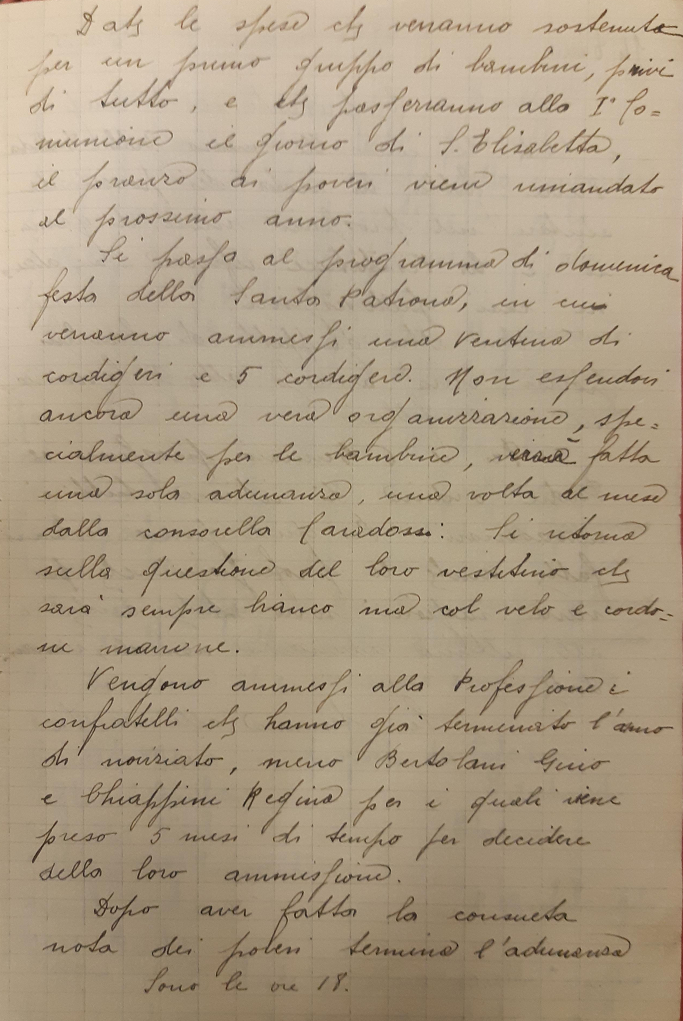 Date le spese che verranno sostenute
per un primo gruppo di bambini, privi
di tutto, e che passerranno alla Iª Co=
munione il giorno di S. Elisabetta,
il pranzo ai poveri viene rimandato
al prossimo anno.
Si passa al programma di domenica
festa della Santa Patrona, in cui
verranno ammessi una ventina di
cordigeri e 5 cordigere. Non essendovi
ancora una vera organizzazione, spe=
cialmente per le bambine, verrà fatta
una sola adunanza, una volta al mese
dalla consorella Caradossi. Si ritorna
sulla questione del loro vestitino che
sarà sempre bianco ma col velo e cordo=
ne marrone.
Vengono ammessi alla Professione i
confratelli che hanno già terminato l'anno
di noviziato, meno Bertolani Gino
e Chiappini Regina per i quali viene
preso 5 mesi di tempo per decidere
della loro ammissione.
Dopo aver fatta la consueta
nota dei poveri termina l'adunanza
Sono le ore 18.